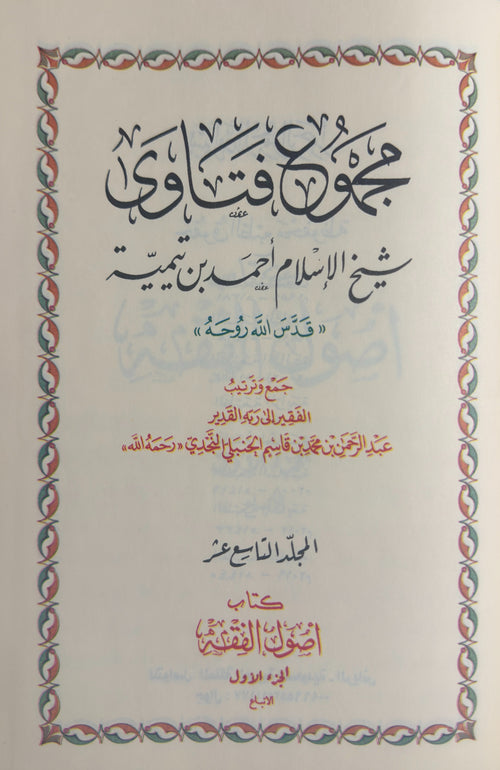 مجموع فتاوى
شيخ الإسلام أحمد بن تيمية
«قدس الله روحه»
جمع وترتيب
الفقير إلى ربه القدير
عبد الرحمن بن محمد بن قاسم الحنبلي النجدي «رحمه الله»
المجلد التاسع عشر
كتاب
أصول الفقه
الجزء الأول
الاتباع